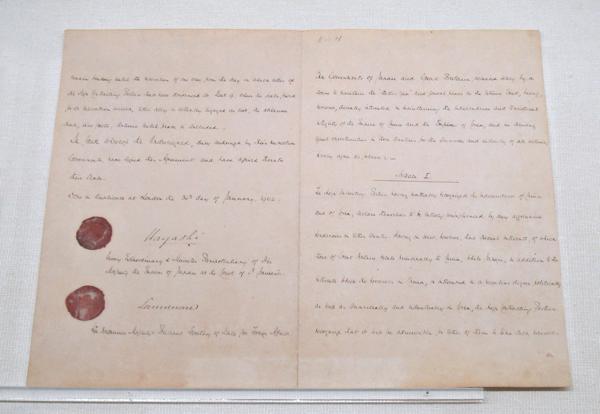 remain binding until the expiration of one year from the day on which either of
the High Contracting Parties shall have denounced it. But if, when the date fixed
for its expiration arrives, either ally is actually engaged in war, the alliance
shall, ipso facto, continue until peace is concluded.
In faith whereof the Undersigned, duly authorized by their respective
Governments, have signed this Agreement and have affixed thereto
their Seals.
Done in duplicate at London the 30th day of January, 1902.
Hayashi
Envoy Extraordinary & Minister Plenipotentiary of His
Majesty the Emperor of Japan at the Court of St. James's.
Lansdowne
His Britannic Majesty's Principal Secretary of State for Foreign Affairs.
The Governments of Japan and Great Britain, actuated solely by a
desire to maintain the status quo and general peace in the extreme East, being,
moreover, specially interested in maintaining the independence and territorial
integrity of the Empire of China and the Empire of Corea, and in securing
equal opportunities in those countries for the commerce and industry of all nations,
hereby agree as follows:—
Article I.
The High Contracting Parties having mutually recognized the independence of China
and of Corea, declare themselves to be entirely uninfluenced by any aggressive
tendencies in either country. Having in view, however, their special interests, of which
those of Great Britain relate principally to China, while Japan, in addition to the
interests which she possesses in China, is interested in a peculiar degree politically
as well as commercially and industrially in Corea, the High Contracting Parties
recognize that it will be admissible for either of them to take such measures